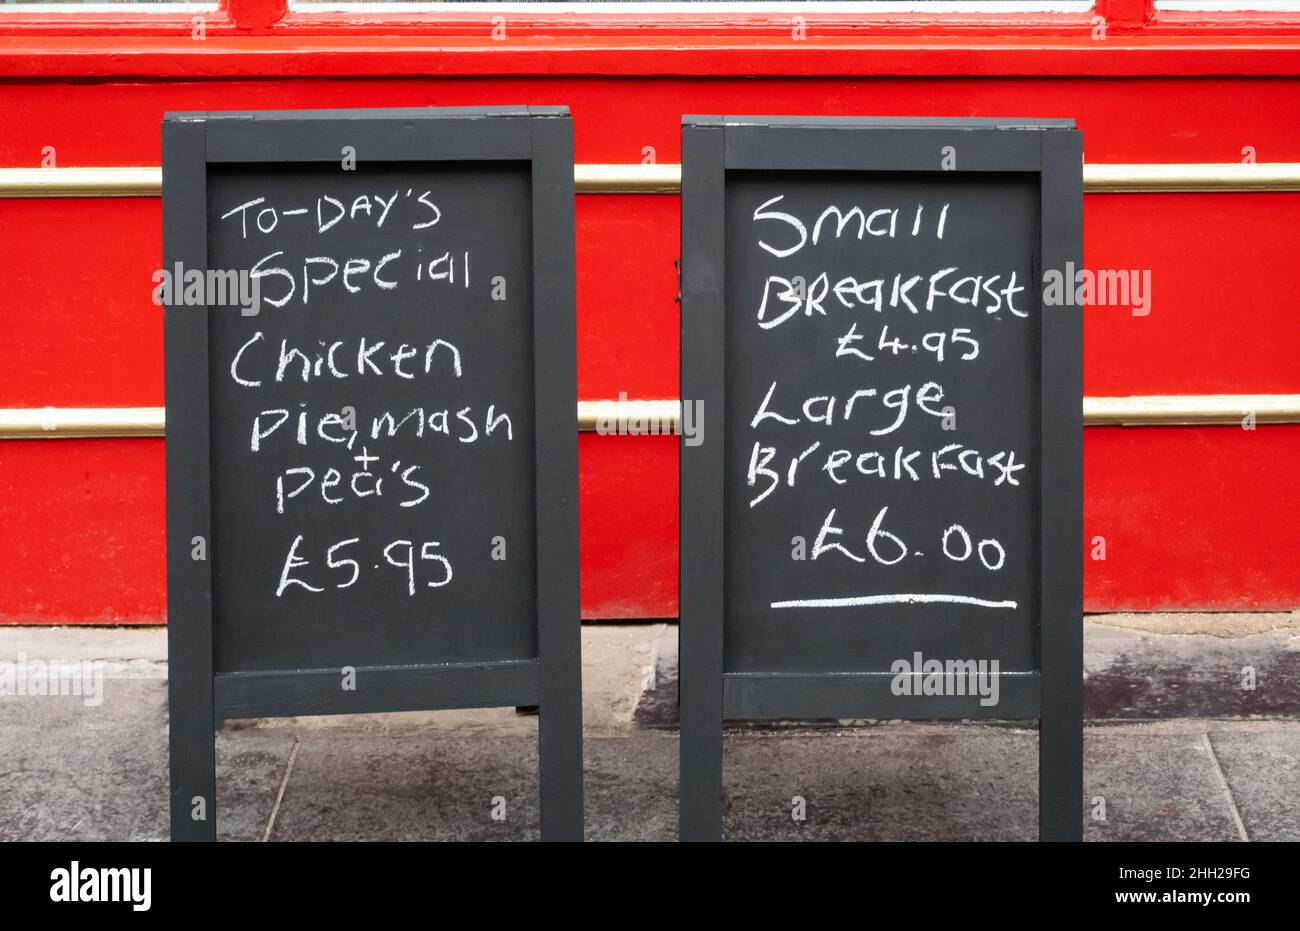 TO-DAY'S
Special
Chicken
Pie, mash
+
Pea's
£5.95
Small
BReakFast
£4.95
Large
Breakfast
£6.00
alamy
Image ID: 2HH29FG
www.alamy.com